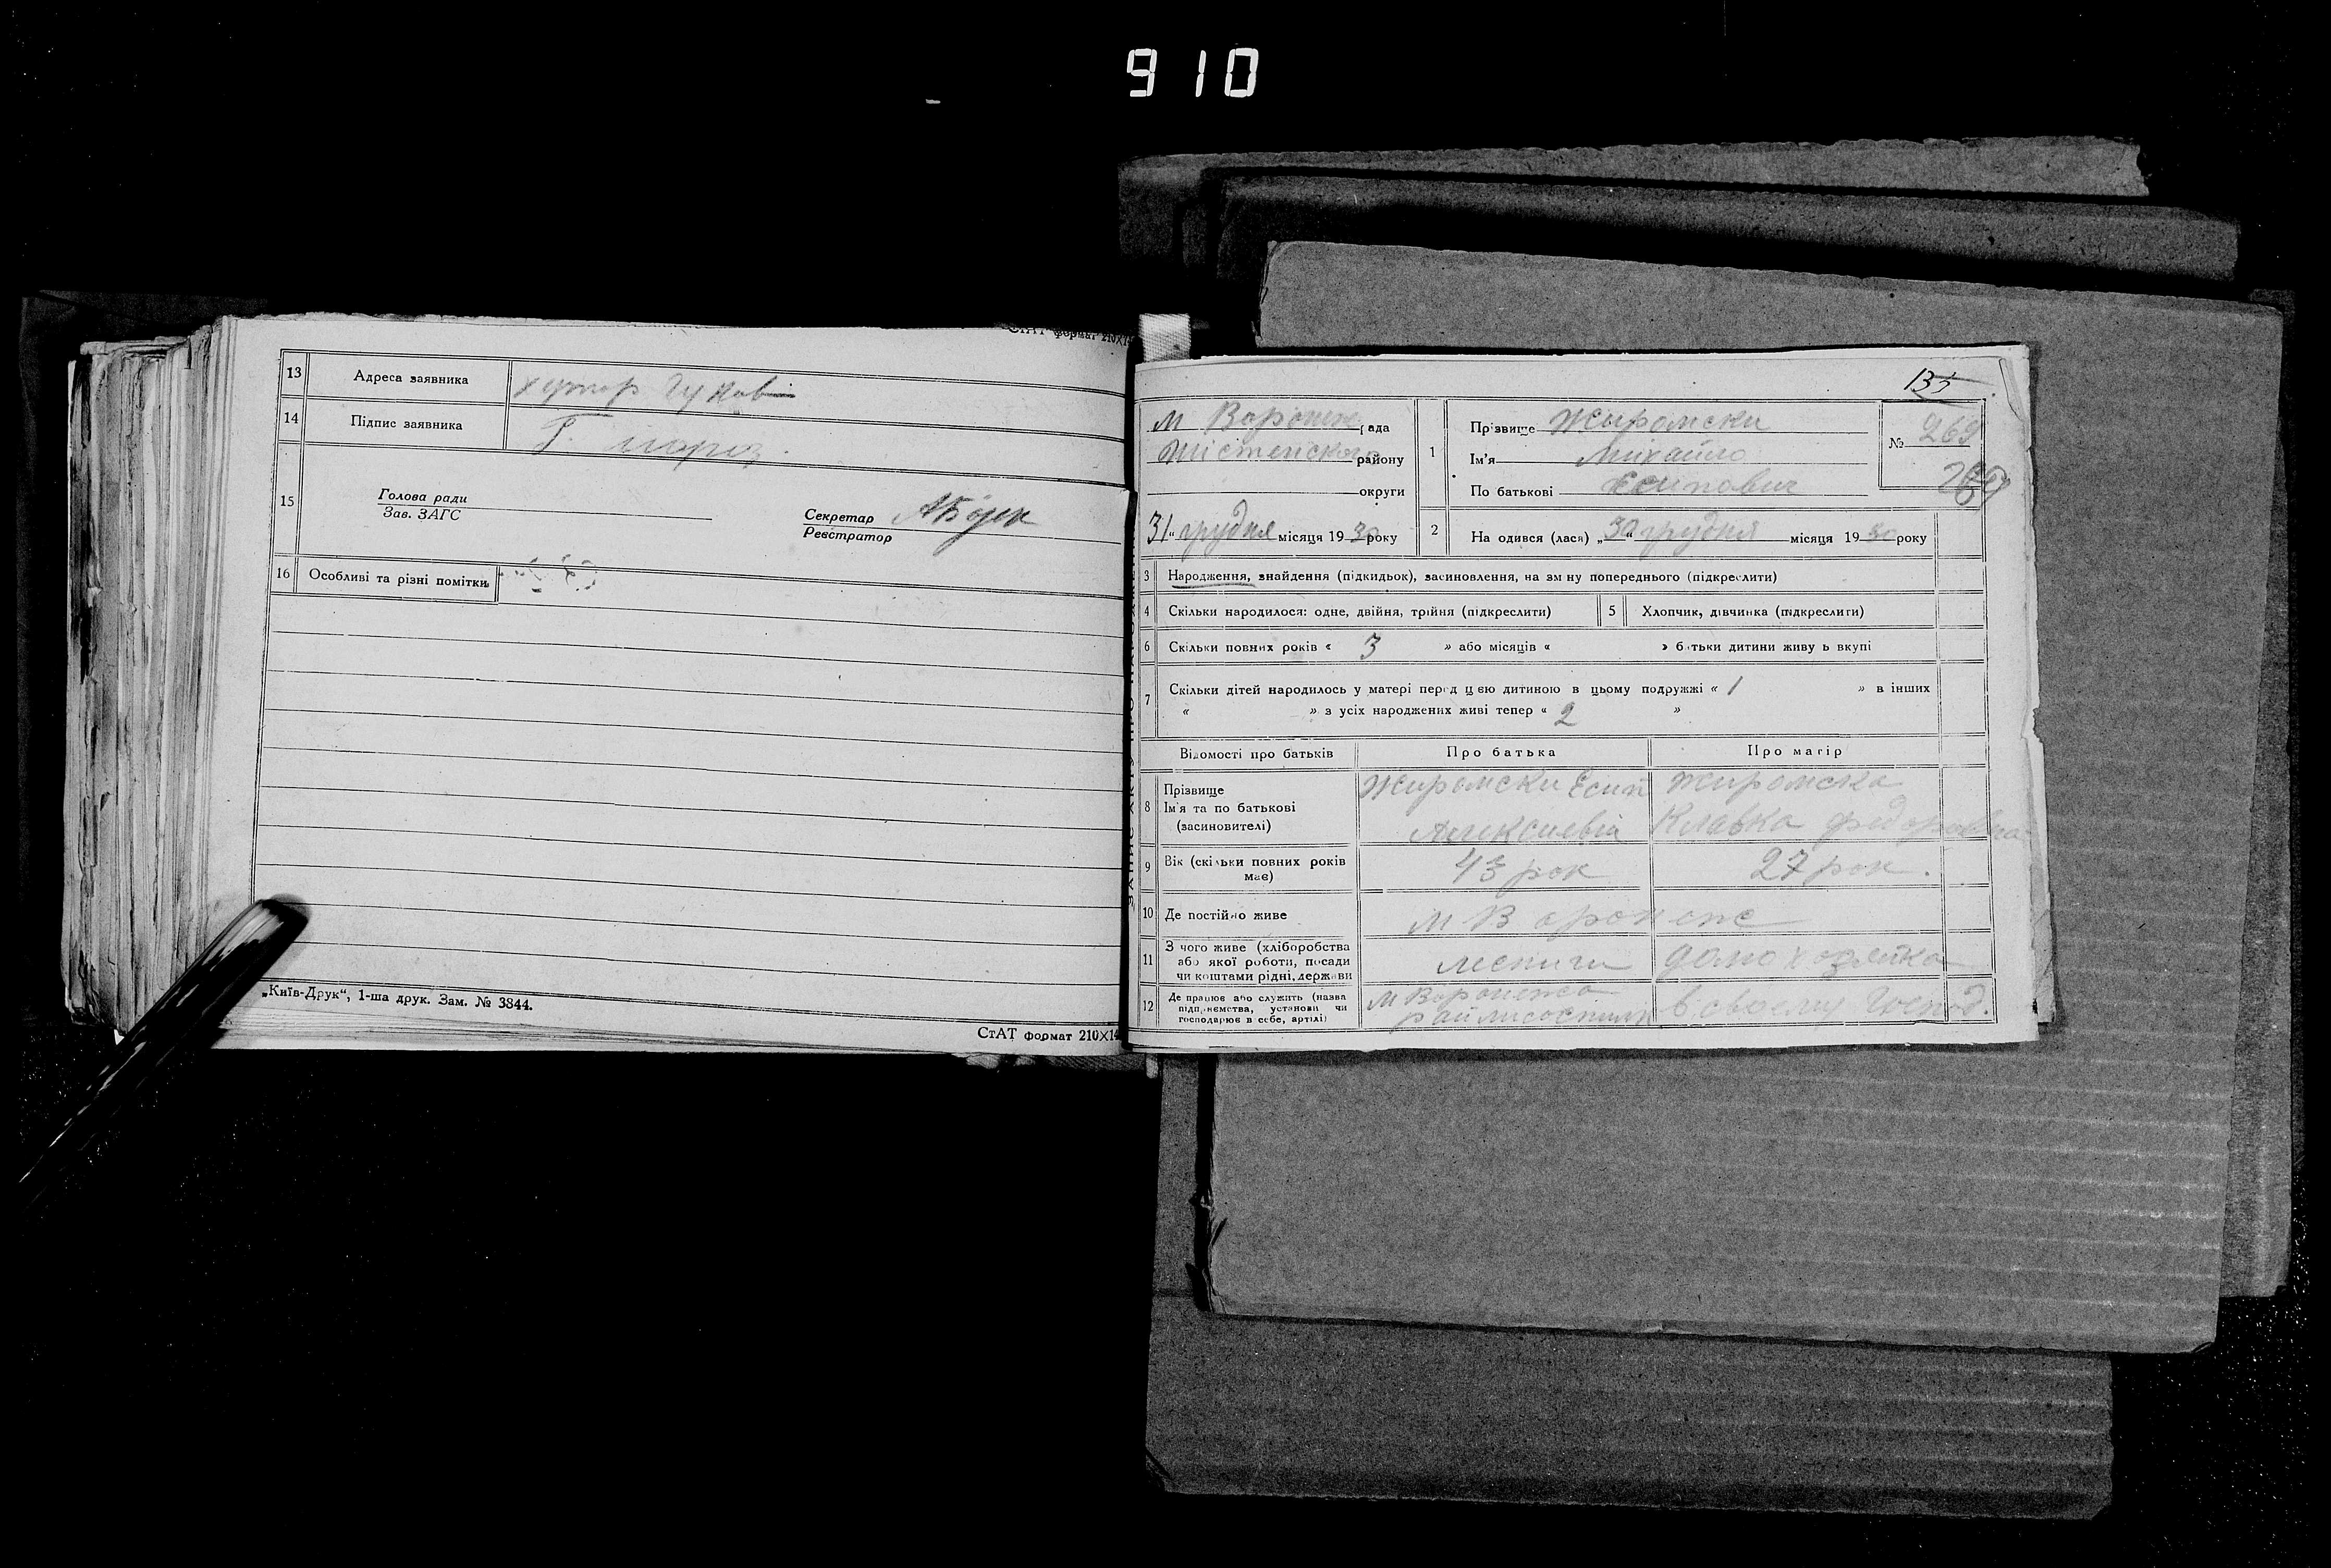 910
СтАТ формат 210×14
13 Адреса заявника хутор Гукові
14 Підпис заявника Г. мороз.
15 Голова ради
Зав. ЗАГС
Секретар
Реєстратор
16 Особливі та різні помітки
„Київ-Друк“, 1-ша друк. Зам. № 3844.
СтАТ формат 210×14
135
м Вороніж рада
району
округи
31 „ грудня місяця 1930 року
1 Прізвище Жиромски
Ім'я Михайло
По батькові Єсипович
№ 269
269
2 На одився (лася) „30 „ грудня місяця 1930 року
3 Народження, знайдення (підкидьок), засиновлення, на зм ну попереднього (підкреслити)
4 Скільки народилося: одне, двійня, трійня (підкреслити)
5 Хлопчик, дівчинка (підкреслити)
6 Скільки повних років « 3 » або місяців « » батьки дитини живу ь вкупі
7 Скільки дітей народилось у матері перед цією дитиною в цьому подружжі « 1 » в інших
« » з усіх народжених живі тепер « 2 »
Відомості про батьків Про батька Про матір
8 Прізвище
Ім'я та по батькові
(засиновителі)
Жиромски Єсип
Алексиевич
Жиромска
Клавка Федоровна
9 Вік (скільки повних років має) 43 рок 27 рок.
10 Де постійно живе м Воронеже
11 З чого живе (хліборобства
або якої роботи, посади
чи коштами рідні, держави
домохозяйка
12 Де працює або служить (назва
підприємства, установи чи
господарює в себе, артілі)
м Воронежа
в своему Господ.